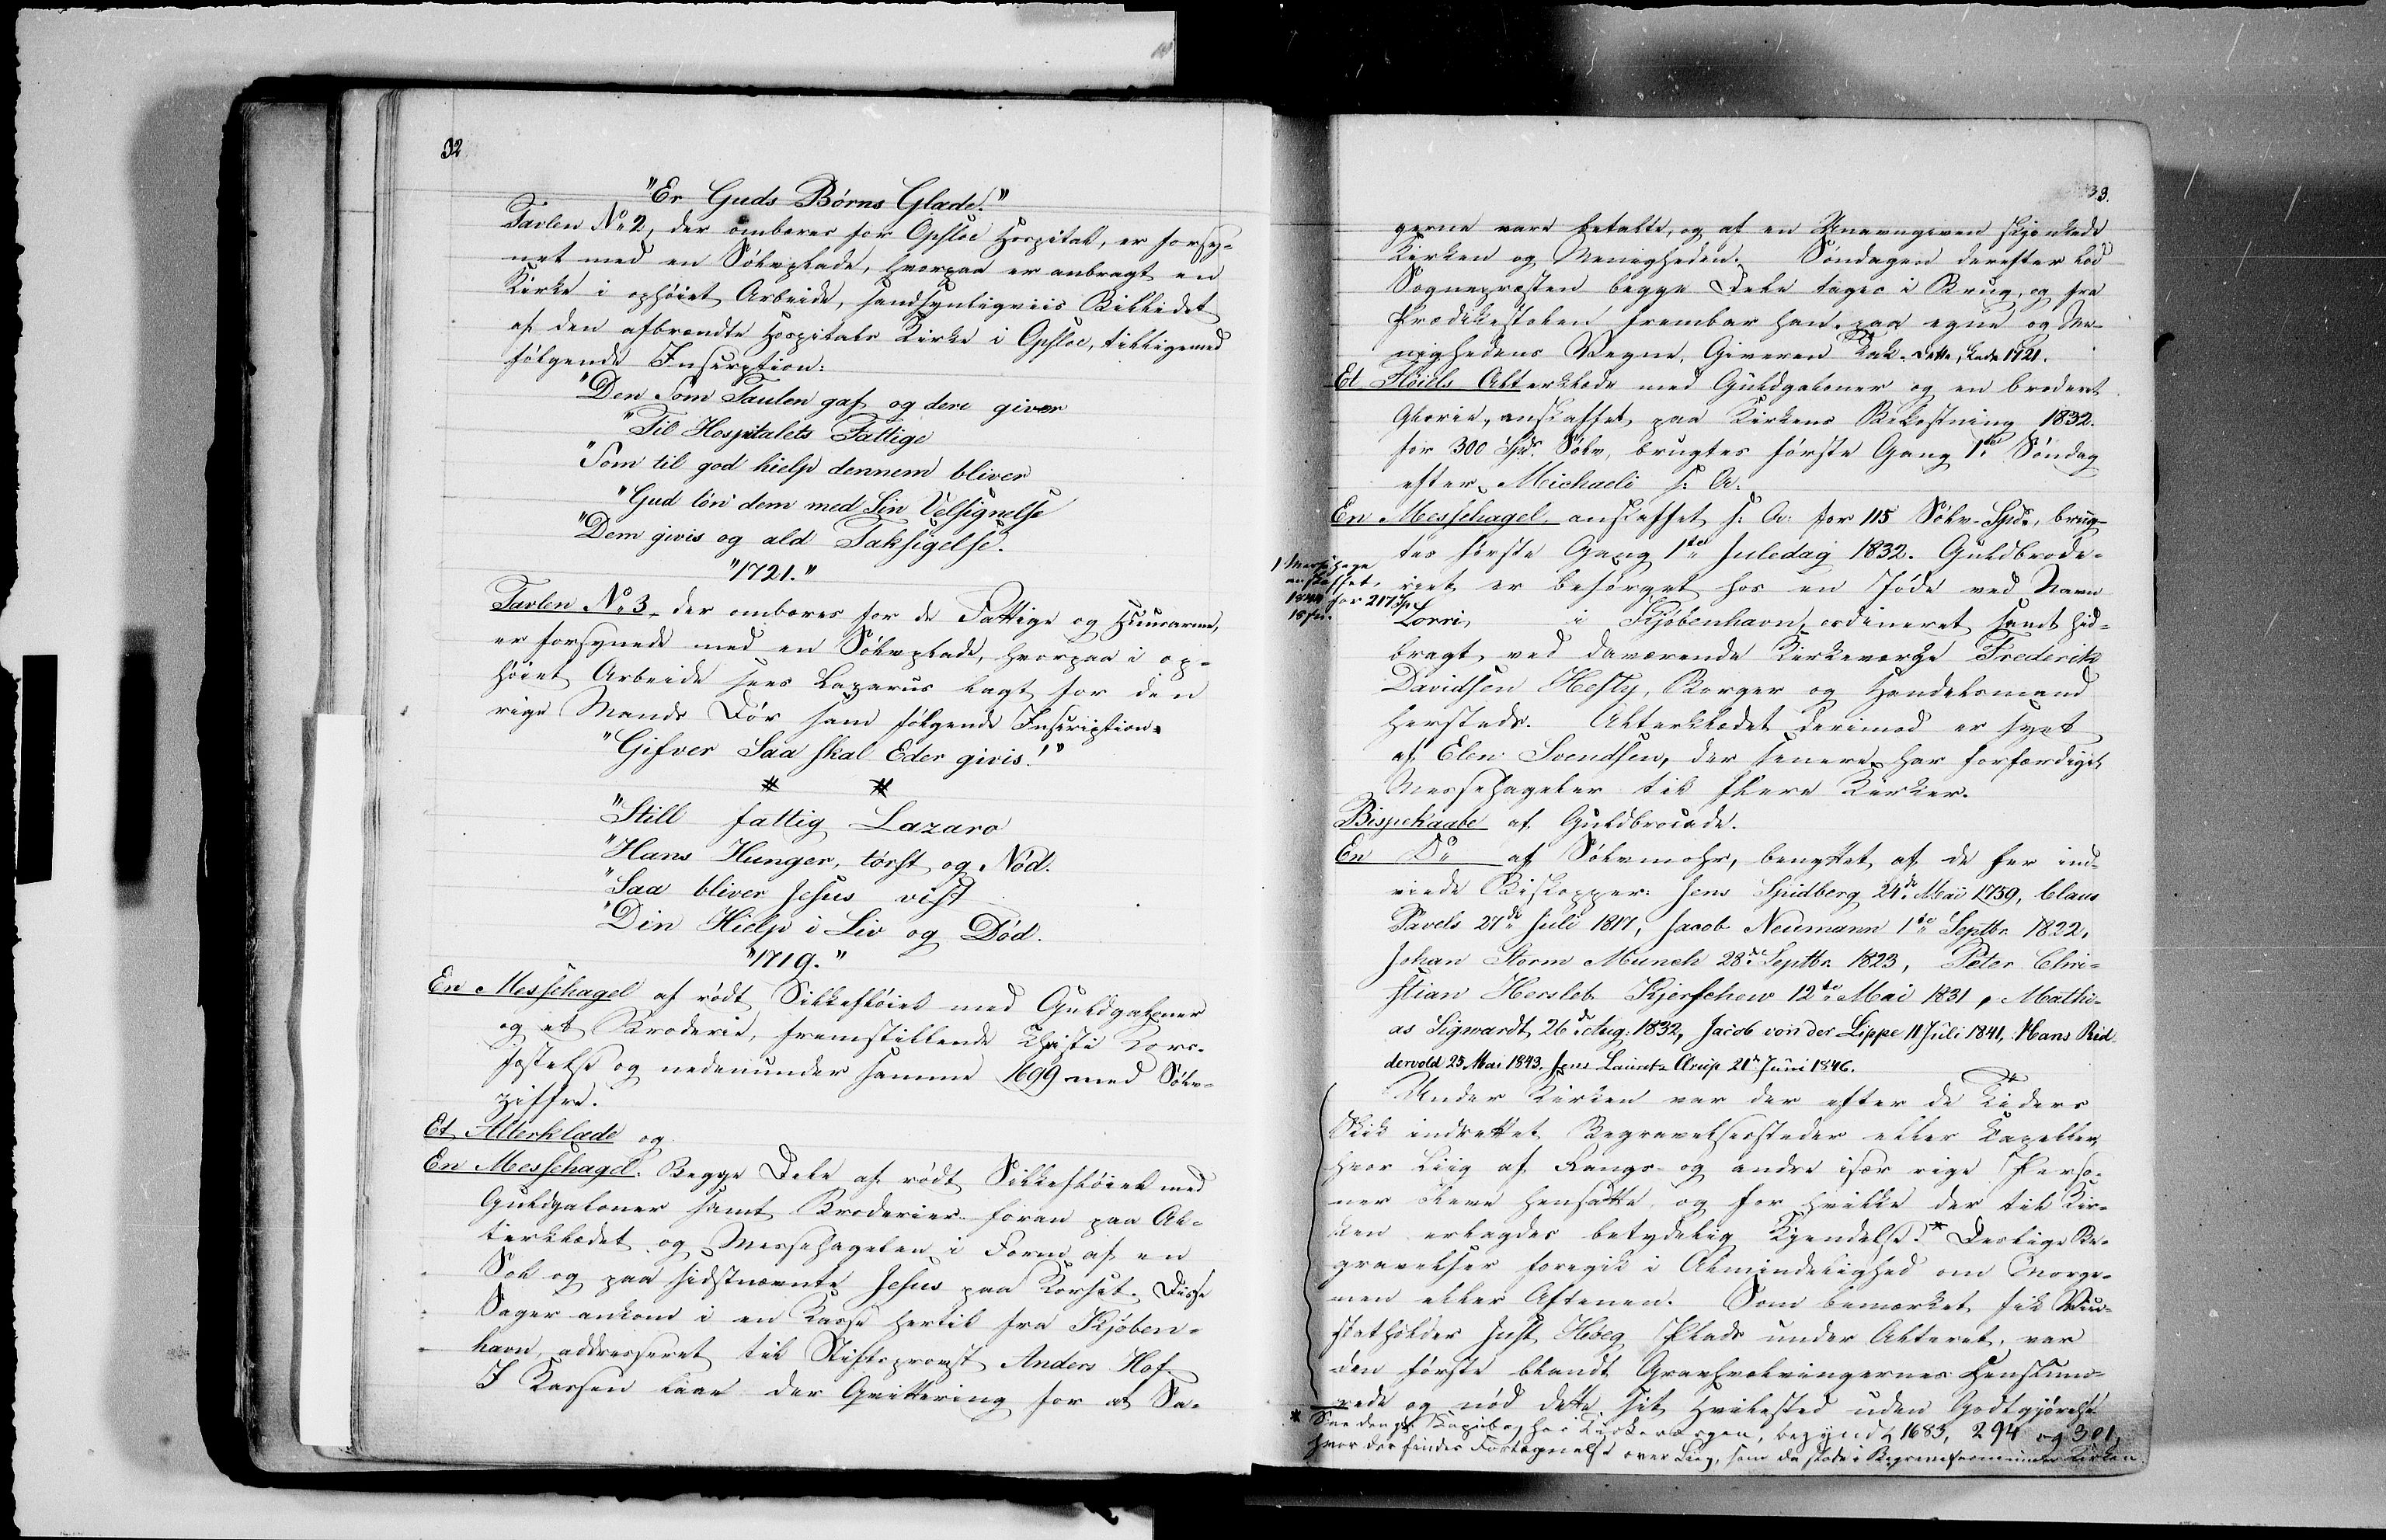 32
"Er Guds Børns Glæde."
Tavlen No 2, der ombæres for Opsloe Hospital, er forsy-
net med en Sølvplade, hvorpaa er anbragt en
Kirke i ophøiet Arbeide, sandsynligviis Billedet
af den afbrændte Hospitals Kirke i Opsloe, tilligemed
følgende Inscription:
"Den Som Taulen gaf og dere giver
"Til Hospitalets Fattige
"Som til god hielp dennem bliver
"Gud løn dem med Sin Velsignelse
"Dem givis og ald Taksigelse.
"1721."
Tavlen No 3, der ombæres for de Fattige og Huusarme,
er forsynede med en Sølvplade, hvorpaa i op-
høiet Arbeide sees Lazarus lagt for den
rige Mands Dør samt følgende Inscription:
"Gifver Saa skal Eder givis!"
"Still fattig Lazaro
"Hans Hunger, tørst og Nød.
"Saa bliver Jesus vist
"Din Hielp i Liv og Død.
"1719."
En Messehagel af rødt Silkefløiel med Guldgaloner
og et Broderie, fremstillende Christi Kors-
fæstelse og nedenunder samme 1699 med Sølv-
ziffre.
Et Alterklæde og
En Messehagel. Begge Dele af rødt Silkefløiel med
Guldgaloner samt Broderier foran paa Al-
terklædet og Messehagelen i Form af en
Sol og paa sidstnævnte Jesus paa Korset. Disse
Sager ankom i en Kasse hertil fra Kjøben-
havn, addresseret til Stiftsprovst Anders Hof
I Kassen laae der Qvittering for at Sa-
33.
gerne vare betalte, og af en Unavngiven skjænkede
Kirken og Menigheden. Søndagen derefter lod
Sognepræsten begge Dele tages i Brug, og fra
Prædikestolen frembar han, paa egne og Me-
nighedens Vegne, Giveren Tak. Dette skede 1721.
Et Fløiels Alterklæde med Guldgaloner og en broderet
Glorie, anskaffet paa Kirkens Bekostning 1832.
for 300 Spd. Sølv, brugtes første Gang 1ste Søndag
efter Michaeli s: A:
En Messehagel, anskaffet s: A: for 115 Sølv-Spd., brug-
tes første Gang 1ste Juledag 1832. Guldbrode-
riet er besørget hos en Jøde ved Navn
Lorri, i Kjøbenhavn, ordineret samt hid-
bragt ved daværende Kirkeværge Frederik
Davidsen Hefty, Borger og Handelsmand
herstads. Alterklædet derimod er syet
af Elen Svendsen, der senere har forfærdiget
Messehageler til flere Kirker.
1 Messehage
anskaffet
1844 for 217 Sp
18 sk.
Bispekaabe af Guldbrocade.
En Do af Sølvmohr, benyttet af de her ind-
viede Biskopper: Jens Spidberg 24de Mai 1759, Claus
Pavels 27de Juli 1817, Jacob Neumann 1ste Septbr. 1822,
Johan Storm Munch 28de Septbr. 1823, Peter Chri-
stian Hersleb Kjerschow 12te Mai 1831, Mathi-
as Sigwardt 26de Aug. 1832, Jacob von der Lippe 11 Juli 1841, Hans Rid-
dervold 25 Mai 1843, Jens Lauritz Arup 21de Juni 1846.
Under Kirken var der efter de Tiders
Skik indrettet Begravelsessteder eller Kapeller,
hvor Liig af Rangs- og andre især rige Perso-
ner bleve hensatte, og for hvilke der til Kir-
ken erlagdes betydelig Kjendelse.* Deslige Be-
gravelser foregik i Almindelighed om Morge-
nen eller Aftenen. Som bemærket fik Vice-
statholder Just Høeg Plads under Alteret, var
den første blandt Gravhvælvingernes Henslum-
rede og nød dette sit Hvilested uden Godtgjørelse
* See den gl. Kopibog hos Kirkeværgen, begyndt 1683, 294 og 301,
hvor der findes Fortegnelse over Liig, som da stode i Begravelserne under Kirken.